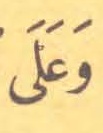 وَعَلَى